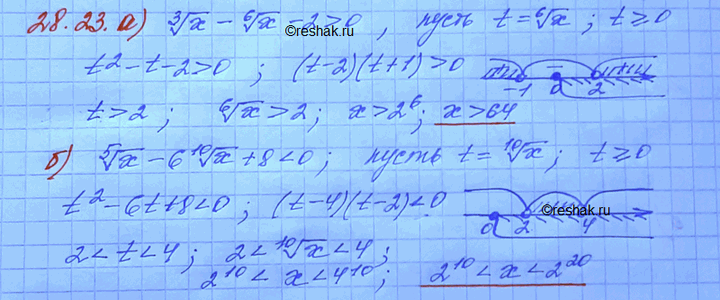 28.23. а) ∛x − ⁶√x − 2 > 0 , пусть t = ⁶√x ; t ≥ 0
©reshak.ru
t² − t − 2 > 0 ; (t−2)(t+1) > 0 + − + −1 0 2
t > 2 ; ⁶√x > 2 ; x > 2⁶ ; x > 64
б) ⁵√x − 6 ¹⁰√x + 8 < 0 ; пусть t = ¹⁰√x ; t ≥ 0
t² − 6t + 8 < 0 ; (t−4)(t−2) < 0 0 2 4
©reshak.ru
2 < t < 4 ; 2 < ¹⁰√x < 4 ;
2¹⁰ < x < 4¹⁰ ; 2¹⁰ < x < 2²⁰